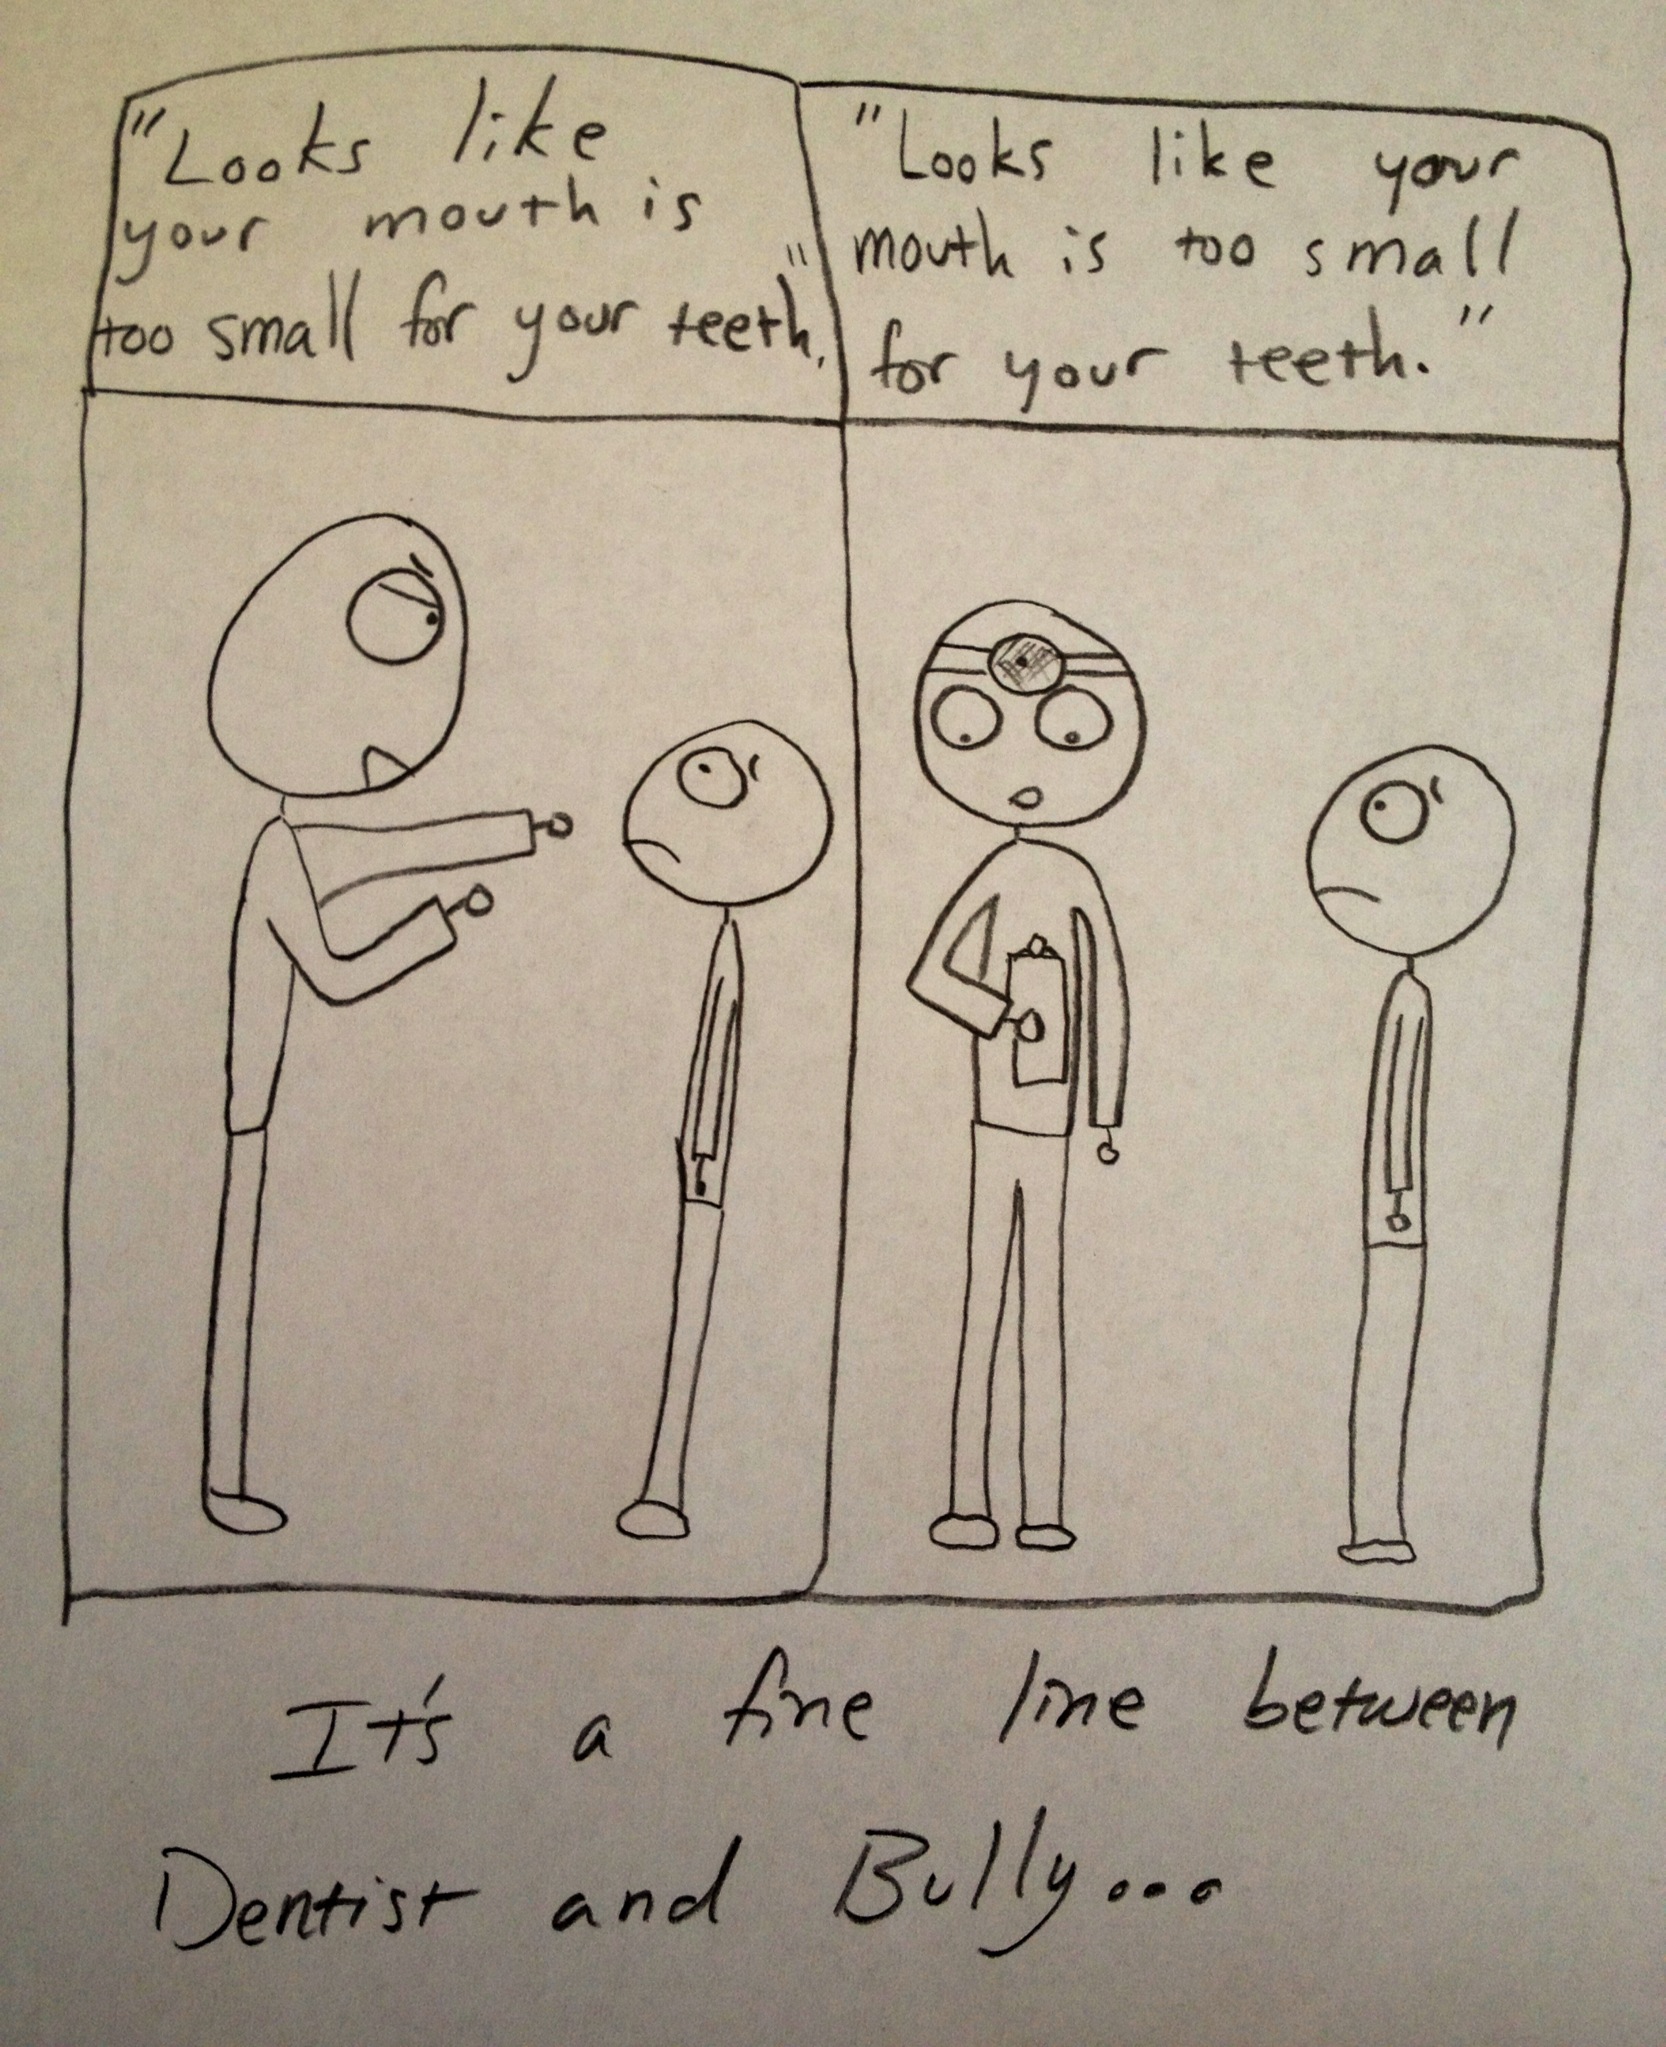 "Looks like
your mouth is
too small for your teeth."
"Looks like your
mouth is too small
for your teeth."
It's a fine line between
Dentist and Bully...